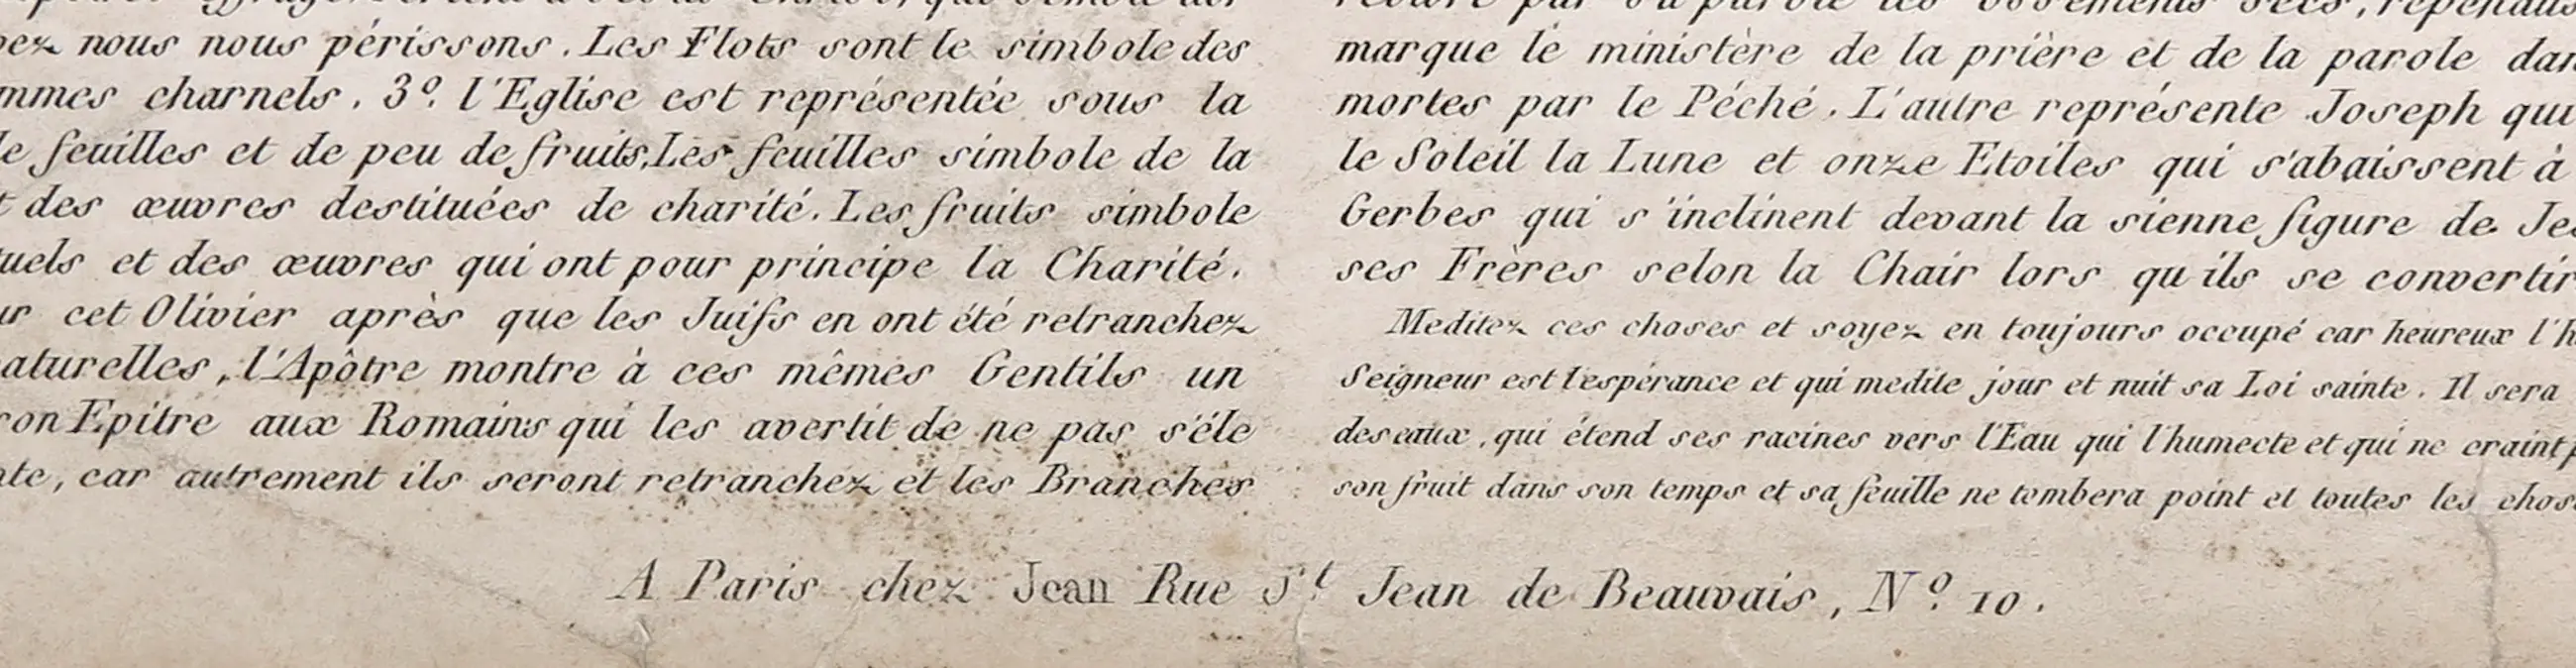 nous nous périssons. Les Flots sont le simbole des
charnels. 3º. l'Eglise est représentée sous la
feuilles et de peu de fruits, Les feuilles simbole de la
des œuvres destituées de charité. Les fruits simbole
et des œuvres qui ont pour principe la Charité.
cet Olivier après que les Juifs en ont été retranchez
l'Apôtre montre à ces mêmes Gentils un
Epitre aux Romains qui les avertit de ne pas s'éle
car autrement ils seront retranchez et les Branches
marque le ministère de la prière et de la parole
mortes par le Péché. L'autre représente Joseph qui
le Soleil la Lune et onze Etoiles qui s'abaissent à
Gerbes qui s'inclinent devant la sienne figure de
ses Frères selon la Chair lors qu ils se
Meditez ces choses et soyez en toujours occupé car heureux
Seigneur est l'espérance et qui medite jour et nuit sa Loi sainte. Il sera
des eaux, qui étend ses racines vers l'Eau qui l'humecte et qui ne craint
son fruit dans son temps et sa feuille ne tombera point et toutes les
A Paris chez Jean Rue St Jean de Beauvais, Nº 10.